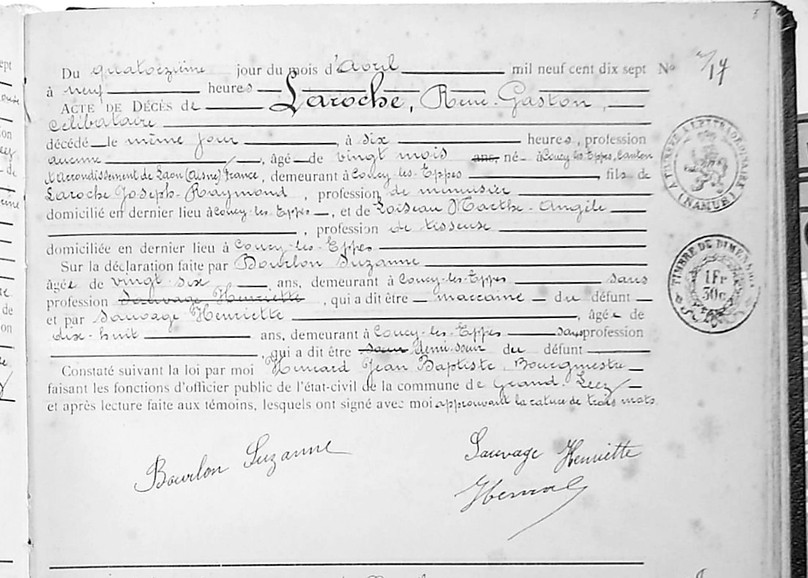 Du quatorzième jour du mois d'Avril mil neuf cent dix sept N° 17
à neuf heures
ACTE DE DÉCÈS de Laroche, René-Gaston,
célibataire
décédé le même jour, à six heures, profession
aucune, âgé de vingt mois ans, né à Coucy-les-Eppes, Canton
d'Arrondissement de Laon (Aisne) France, demeurant à Coucy-les-Eppes fils de
Laroche Joseph-Raymond, profession de menuisier
domicilié en dernier lieu à Coucy-les-Eppes, et de Loiseau Marthe-Angèle
, profession de tisseuse
domiciliée en dernier lieu à Coucy-les-Eppes
Sur la déclaration faite par Bourlon Suzanne
âgée de vingt six ans, demeurant à Coucy-les-Eppes sans
profession Sauvage Henriette, qui a dit être marraine du défunt
et par Sauvage Henriette, âgée de
dix-huit ans, demeurant à Coucy-les-Eppes sans profession
, qui a dit être soeur demi-soeur du défunt
Constaté suivant la loi par moi Jean Baptiste Bourgmestre
faisant les fonctions d'officier public de l'état-civil de la commune de Grand-Leez
et après lecture faite aux témoins, lesquels ont signé avec moi approuvant la rature de trois mots.
Bourlon Suzanne
Sauvage Henriette
TIMBRE EXTRAORDINAIRE
(NAMUR)
TIMBRE DE DIMENSION
1 Fr
30c